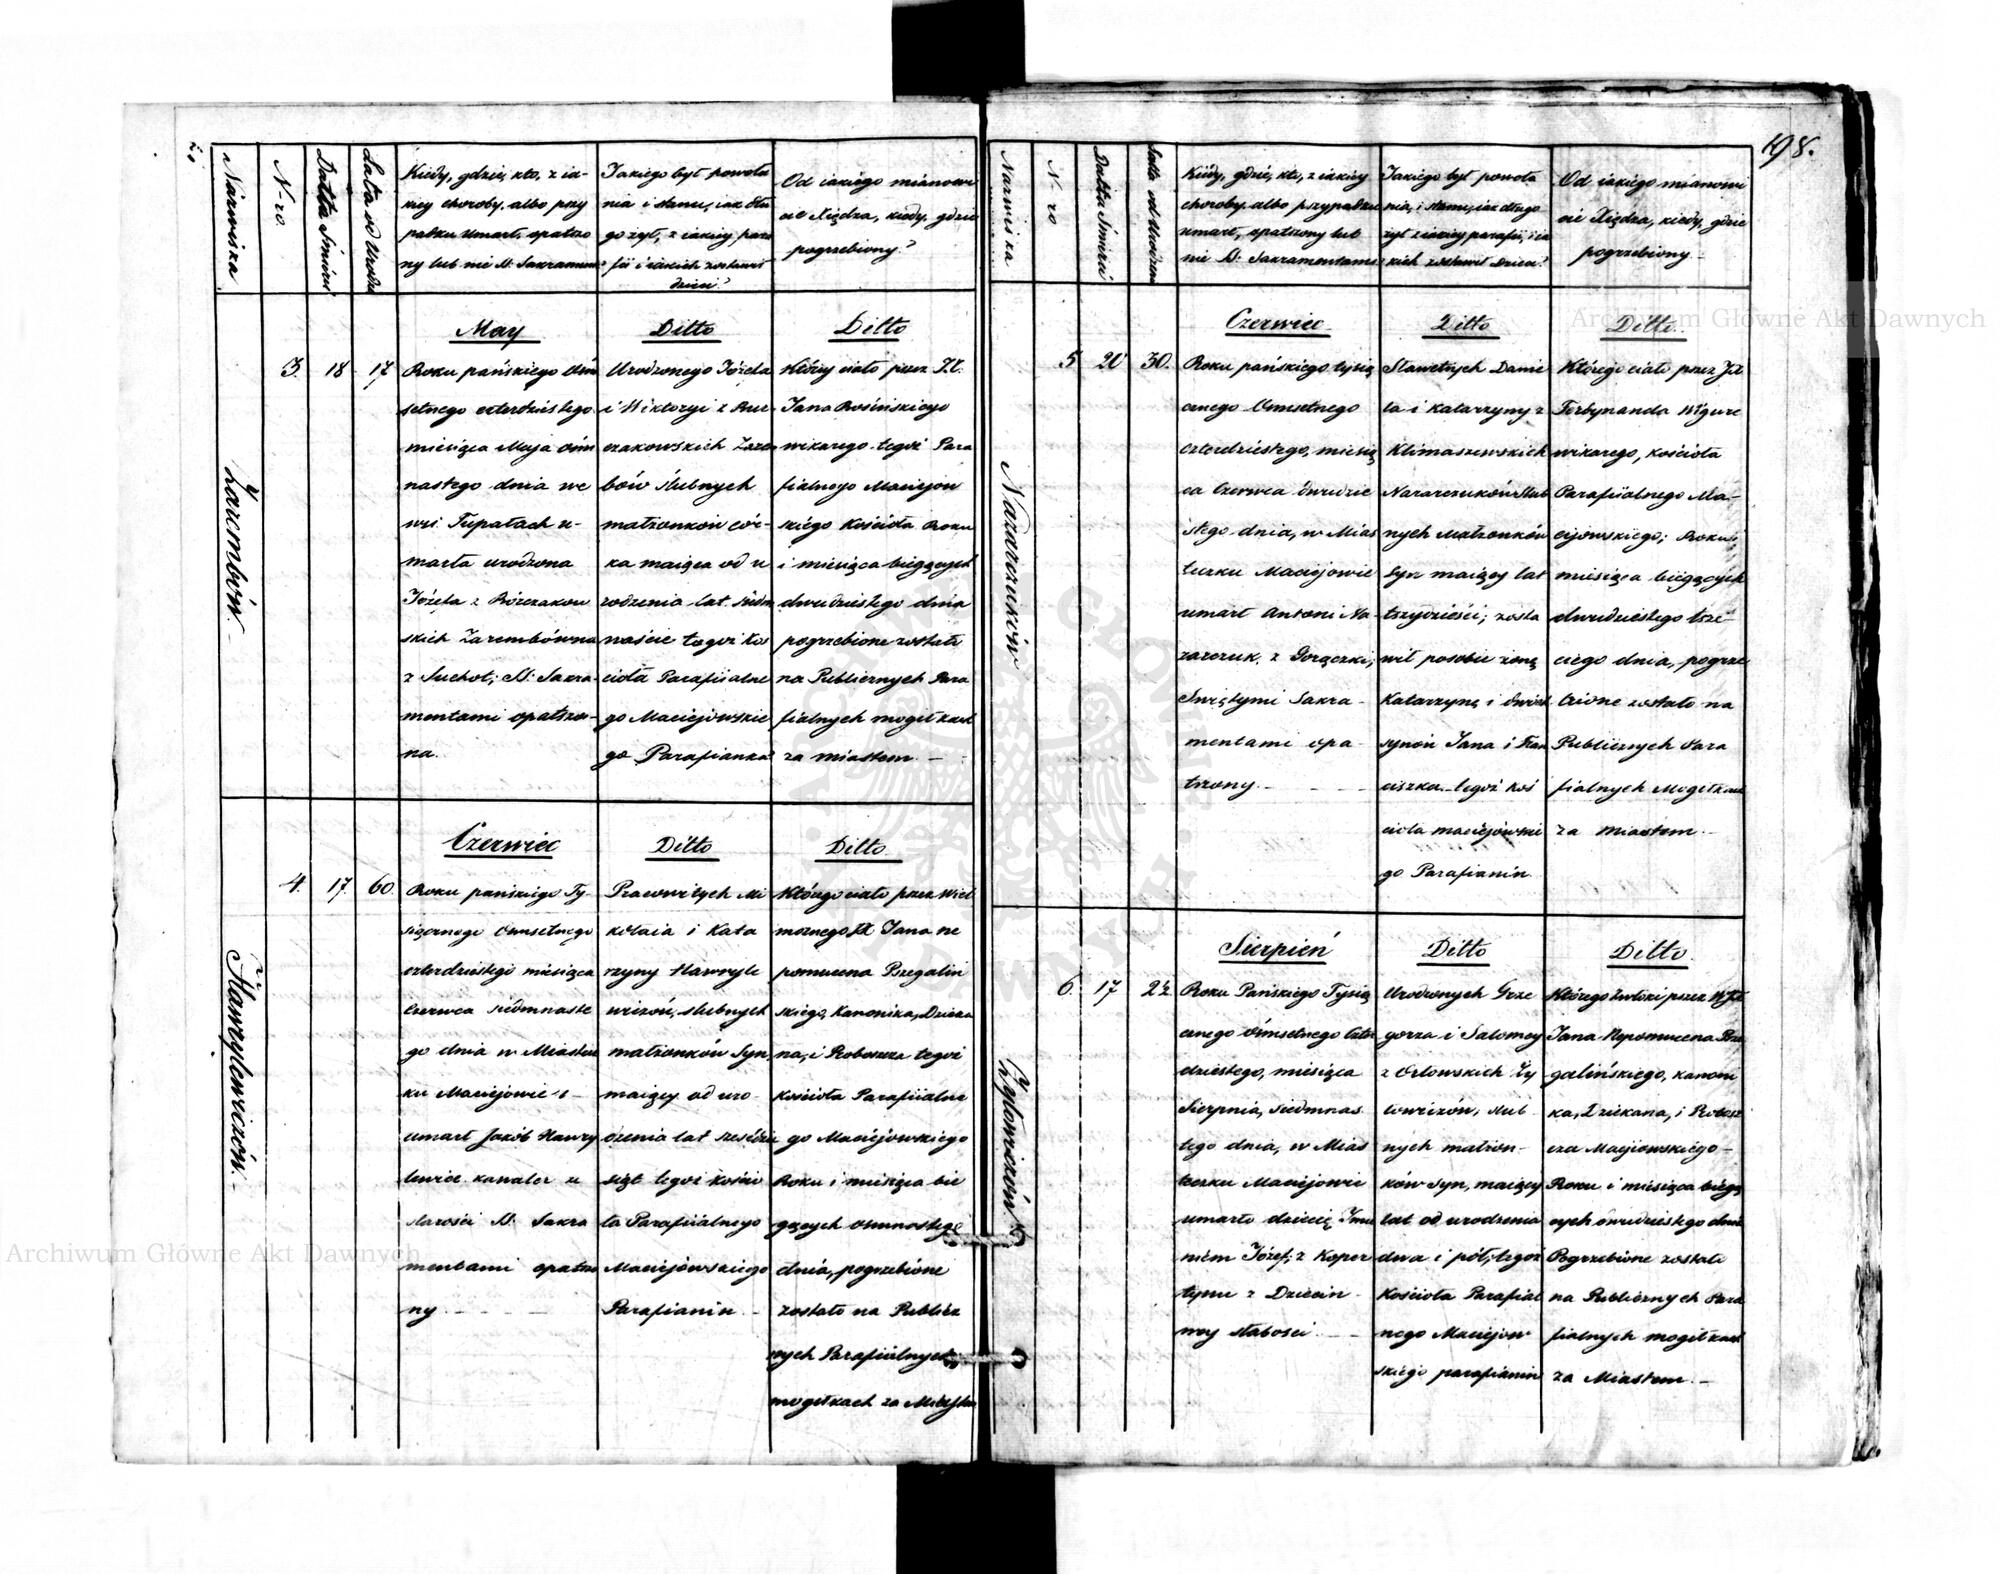 198.
Nazwiska
N-ro.
Datta Śmierci
Lata od Urodze
Kiedy, gdzie, kto, z ia-
kiey choroby albo przy
padku umarł, opatrzo
ny lub nie SS. Sakramen
Jakiego był powoła
nia i stanu, iak dłu
go żył, z iakiey para
fii i iakich zostawił
dzieci?
Od iakiego mianowi
cie Xiędza, kiedy, gdzie
pogrzebiony?
Zarembów.
3. 18 17
May
Roku pańskiego Ośm
setnego czterdziestego
miesiąca Maja ośm
nastego dnia we
wsi Tupałach u-
marła urodzona
Józefa z
skich Zarembówna
z Suchot; SS. Sakra
mentami opatrzo-
na.
Ditto
Urodzonego Józefa
i Wiktoryi z Bur-
czakowskich Zarem
bów ślubnych
małżonków cór-
ka maiąca od u
rodzenia lat siedm
naście tegoż Koś
cioła Parafiialne
go Maciejowskie
go Parafianka
Ditto
Którey ciało przez JX.
Jana Rosińskiego
wikarego tegoż Para
fialnego Maciejow
skiego Kościoła Roku
i miesiąca bieżących
dwudziestego dnia
pogrzebione zostało
na Publicznych Para
fialnych mogiłkach
za miastem. —
Hawrylewiczów.
4. 17 60.
Czerwiec
Roku pańskiego Ty-
siącznego Ośmsetnego
czterdziestego miesiąca
Czerwca siedmnaste
go dnia w Miastecz
ku Maciejowie
umarł Jakób Hawry
lewicz kawaler z
starości SS. Sakra
mentami opatrzo
ny
Ditto
Pracowitych Mi
kołaia i Kata
rzyny Hawryle
wiczów, ślubnych
małżonków Syn,
maiący od uro-
dzenia lat sześćdzie
siąt tegoż kościo
ła Parafiialnego
Maciejowskiego
Parafianin
Ditto
Którego ciało przez Wiel
możnego JX Jana ne
pomucena Przegaliń
skiego, Kanonika, Dzieka
na, i Proboszcza tegoż
kościoła Parafiialne
go Maciejowskiego
Roku i miesiąca bie
żących ośmnastego
dnia, pogrzebione
zostało na Publicz
nych Parafialnych
mogiłkach za Miastem
Nazwiska
N-ro
Datta Śmierci
Latta od Urodzen
Kiedy, gdzie, kto, z iakiey
choroby albo przypadku
umarł, opatrzony lub
nie SS. Sakramentami
Jakiego był powoła
nia, i stanu, iak długo
żył z iakiey parafii, i ia
kich zostawił Dzieci?
Od iakiego mianowi
cie Xiędza, kiedy, gdzie
pogrzebiony. —
Nazarczuków
5 20 30.
Czerwiec
Roku pańskiego tysią
cznego Ośmsetnego
Czterdziestego, miesią
ca Czerwca dwudzie
stego dnia, w Mias
teczku Maciejowie
umarł Antoni Na
zarczuk, z Gorączki,
Świętymi Sakra-
mentami opa-
trzony.
Ditto
Sławetnych Danie
la i Katarzyny z
Klimaszewskich
Nazarczuków ślub
nych Małżonków
Syn maiący lat
trzydzieści; zosta
wił posobie żonę
Katarzynę i dwóch
synów Jana i Fran
ciszka. tegoż Koś
cioła maciejówskie
go Parafianin
Ditto.
Którego ciało przez JX.
Ferdynanda Wigure
wikarego, kościoła
Parafiialnego Ma-
ciejowskiego; Roku i
miesiąca bieżących
dwudziestego trze-
ciego dnia, pogrze
bione zostało na
Publicznych Para
fialnych Mogiłkach
za Miastem. —
Żytowiczów
6. 17 2½
Sierpień
Roku Pańskiego Tysią
cznego Ośmsetnego Czter
dziestego, miesiąca
Sierpnia, siedmnas
tego dnia, w Mias
teczku Maciejowie
umarło dziecię Imie
niem Józef; z Koper
tymi z Dziecin
ney słabości
Ditto
Urodzonych Grze
gorza i Salomey
z Orłowskich Ży
towiczów, ślub-
nych małżon-
ków Syn, maiący
lat od urodzenia
dwa i pół, tegoż
Kościoła Parafial
nego Maciejow
skiego parafianin
Ditto.
Którego zwłoki przez WJX
Jana Nepomucena Prze
galińskiego, kanoni
ka, Dziekana, i Probosz
cza Maciiowskiego —
Roku i miesiąca bieżą
cych dwudziestego dnia
Pogrzebione zostało
na Publicznych Para
fialnych mogiłkach
za Miastem. —
Archiwum Główne Akt Dawnych
Archiwum Główne Akt Dawnych